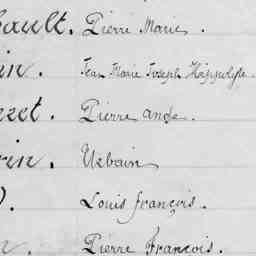 bault. Pierre Marie.
in. Jean Marie Joseph Hyppolyte.
ezet. Pierre ande.
rin. Urbain
Louis françois.
Pierre François.